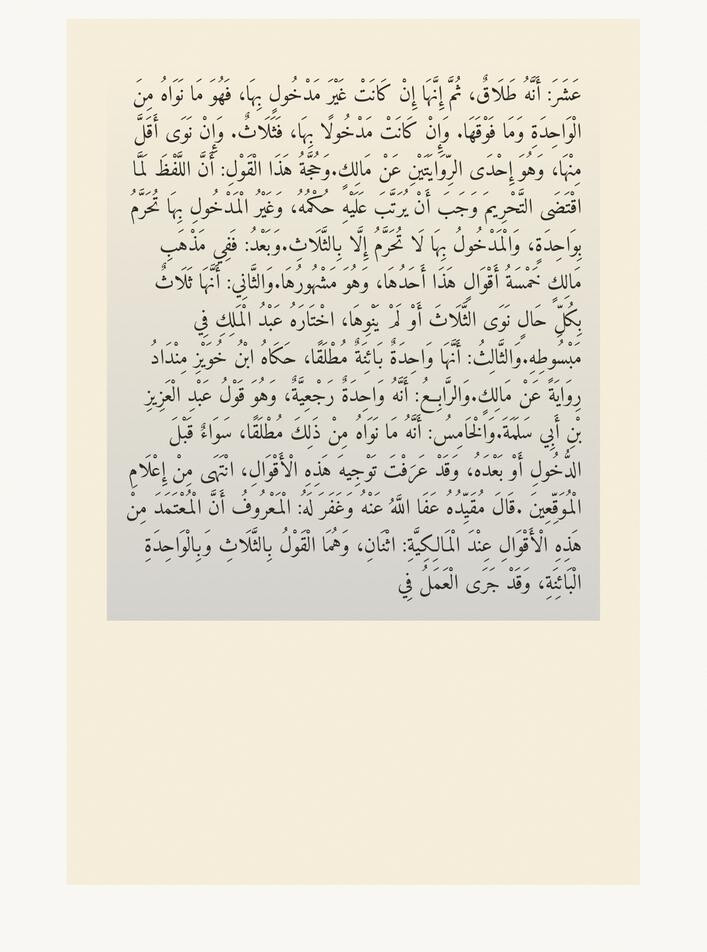 عَشَرَ: أَنَّهُ طَلَاقٌ، ثُمَّ إِنَّهَا إِنْ كَانَتْ غَيْرَ مَدْخُولٍ بِهَا، فَهُوَ مَا نَوَاهُ مِنَ
الْوَاحِدَةِ وَمَا فَوْقَهَا. وَإِنْ كَانَتْ مَدْخُولًا بِهَا، فَثَلَاثٌ. وَإِنْ نَوَى أَقَلَّ
مِنْهَا، وَهُوَ إِحْدَى الرِّوَايَتَيْنِ عَنْ مَالِكٍ.وَحُجَّةُ هَذَا الْقَوْلِ: أَنَّ اللَّفْظَ لَمَّا
اقْتَضَى التَّحْرِيمَ وَجَبَ أَنْ يُرَتَّبَ عَلَيْهِ حُكْمُهُ، وَغَيْرُ الْمَدْخُولِ بِهَا تَحْرُمُ
بِوَاحِدَةٍ، وَالْمَدْخُولُ بِهَا لَا تُحَرَّمُ إِلَّا بِالثَّلَاثِ.وَبَعْدُ: فَفِي مَذْهَبِ
مَالِكٍ خَمْسَةُ أَقْوَالٍ هَذَا أَحَدُهَا، وَهُوَ مَشْهُورُهَا.وَالثَّانِي: أَنَّهَا ثَلَاثٌ
بِكُلِّ حَالٍ نَوَى الثَّلَاثَ أَوْ لَمْ يَنْوِهَا، اخْتَارَهُ عَبْدُ الْمَلِكِ فِي
مَبْسُوطِهِ.وَالثَّالِثُ: أَنَّهَا وَاحِدَةٌ بَائِنَةٌ مُطْلَقًا، حَكَاهُ ابْنُ خُوَيْزِ مِنْدَادُ
رِوَايَةً عَنْ مَالِكٍ.وَالرَّابِعُ: أَنَّهُ وَاحِدَةٌ رَجْعِيَّةٌ، وَهُوَ قَوْلُ عَبْدِ الْعَزِيزِ
بْنِ أَبِي سَلَمَةَ.وَالْخَامِسُ: أَنَّهُ مَا نَوَاهُ مِنْ ذَلِكَ مُطْلَقًا، سَوَاءٌ قَبْلَ
الدُّخُولِ أَوْ بَعْدَهُ، وَقَدْ عَرَفْتَ تَوْجِيهَ هَذِهِ الْأَقْوَالِ، انْتَهَى مِنْ إِعْلَامِ
الْمُوَقِّعِينَ .قَالَ مُقَيِّدُهُ عَفَا اللَّهُ عَنْهُ وَغَفَرَ لَهُ: الْمَعْرُوفُ أَنَّ الْمُعْتَمَدَ مِنْ
هَذِهِ الْأَقْوَالِ عِنْدَ الْمَالِكِيَّةِ: اثْنَانِ، وَهُمَا الْقَوْلُ بِالثَّلَاثِ وَبِالْوَاحِدَةِ
الْبَائِنَةِ، وَقَدْ جَرَى الْعَمَلُ فِي